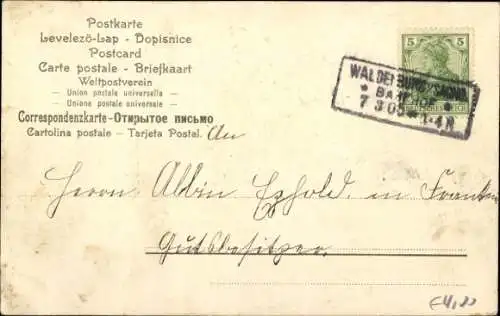 Postkarte
Levelező-Lap - Dopisnice
Postcard
Carte postale - Briefkaart
Weltpostverein
— Union postale universelle —
— Unione postale universale —
Correspondenzkarte - Открытое письмо
Cartolina postale - Tarjeta Postal.
5 5
WALDENBURG
7 3 05 1-4 N
An
Herrn Albin in
Gutsbesitzer